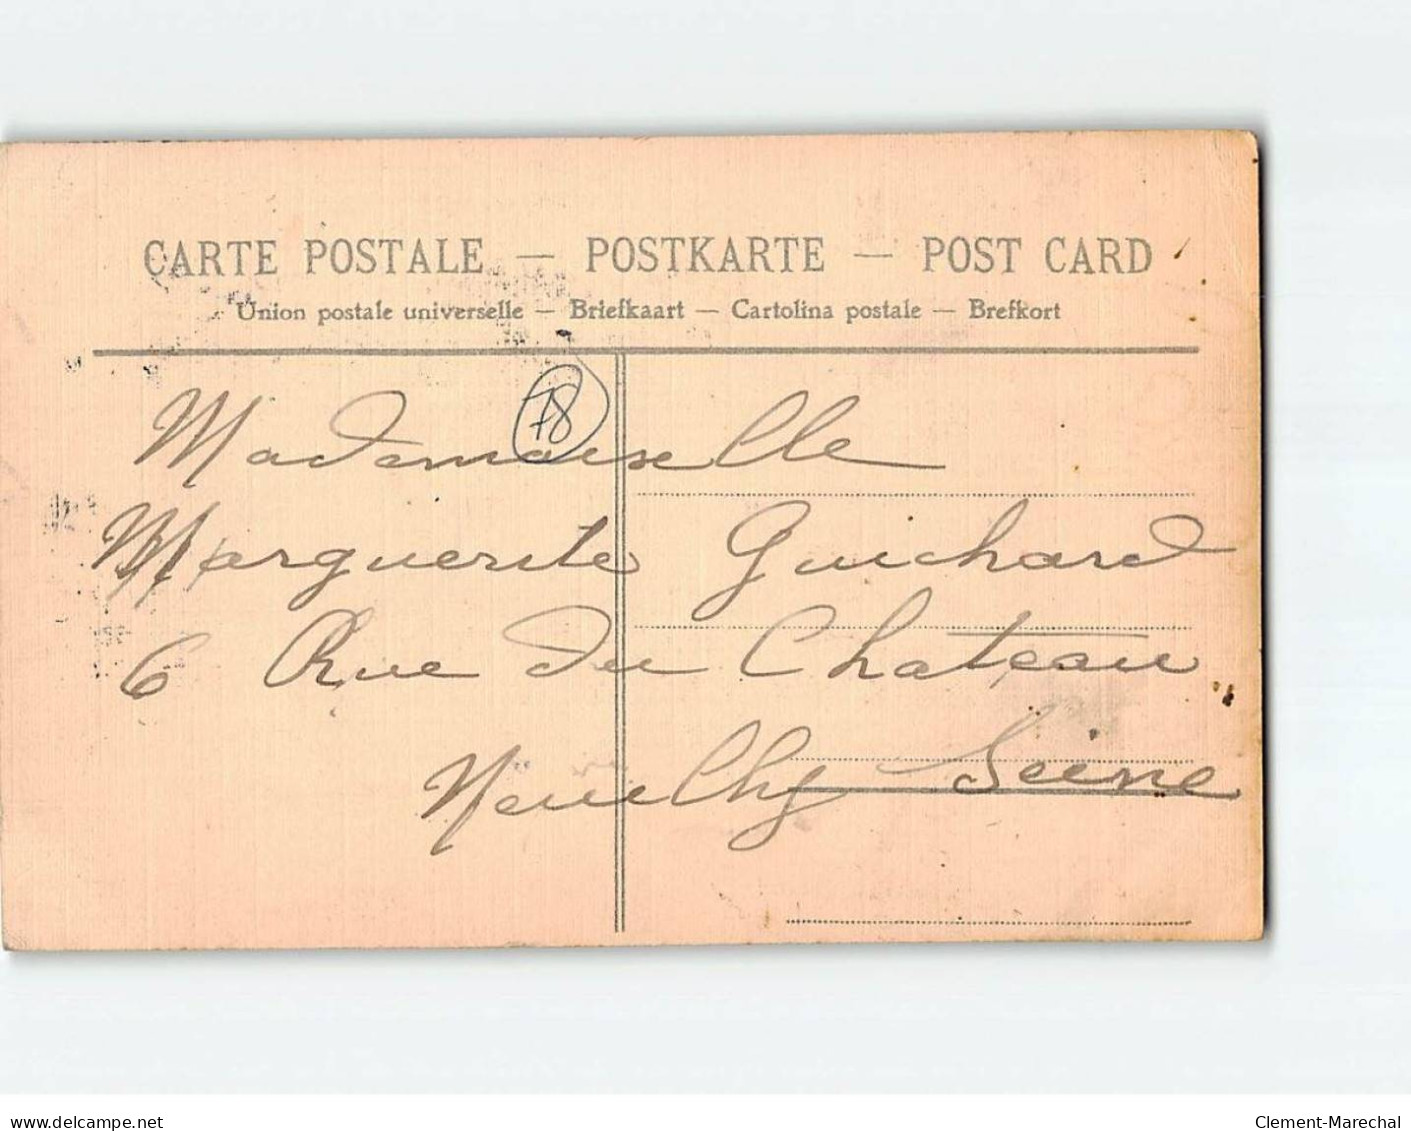 CARTE POSTALE — POSTKARTE — POST CARD
Union postale universelle — Briefkaart — Cartolina postale — Brefkort
78
Mademoiselle
Marguerite Guichard
6 Rue du Chateau
Neuilly Seine
www.delcampe.net
Clement-Marechal